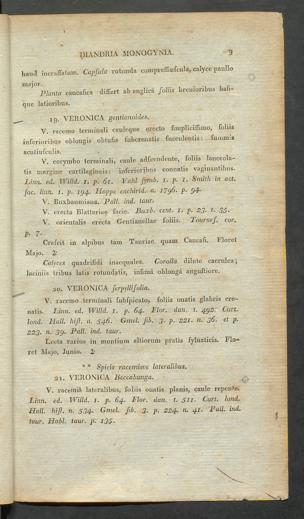 DIANDRIA MONOGYNIA. 9
haud incrassatam. Capsula rotunda compressiuscula, calyce paullo
major.
Planta caucasica differt ab anglica foliis brevioribus basi-
que latioribus.
19. VERONICA gentianoides.
V. racemo terminali cauleque erecto simplicissimo, foliis
inferioribus oblongis obtusis subcrenatis succulentis: summis
acutiusculis.
V. corymbo terminali, caule adscendente, foliis lanceola-
tis margine cartilagineis: inferioribus connatis vaginantibus.
Linn. ed. Willd. 1. p. 61. Vahl symb. 1. p. 1. Smith in act.
soc. linn. 1. p. 194. Hoppe enchirid. a. 1796. p. 94.
V. Buxbaumiana. Pall. ind. taur.
V. erecta Blattariae facie. Buxb. cent. 1. p. 23. t. 35.
V. orientalis erecta Gentianellae foliis. Tournef. cor.
p. 7.
Crescit in alpibus tam Tauriae quam Caucasi. Floret
Majo. ♃
Calyces quadrifidi inaequales. Corolla dilute caerulea;
laciniis tribus latis rotundatis, infima oblonga angustiore.
20. VERONICA serpyllifolia.
V. racemo terminali subspicato, foliis ovatis glabris cre-
natis. Linn. ed. Willd. 1. p. 64. Flor. dan. t. 492. Curt.
lond. Hall. hist. n. 546. Gmel. sib. 3. p. 221. n. 36. et p.
223. n. 39. Pall. ind. taur.
Lecta varius in montium altiorum pratis sylvaticis. Flo-
ret Majo, Junio. ♃
** Spicis racemisve lateralibus.
21. VERONICA Beccabunga.
V. racemis lateralibus, foliis ovatis planis, caule repente.
Linn. ed. Willd. 1. p. 64. Flor. dan. t. 511. Curt. lond.
Hall. hist. n. 534. Gmel. sib. 3. p. 224. n. 41. Pall. ind.
taur. Habl. taur. p. 135.